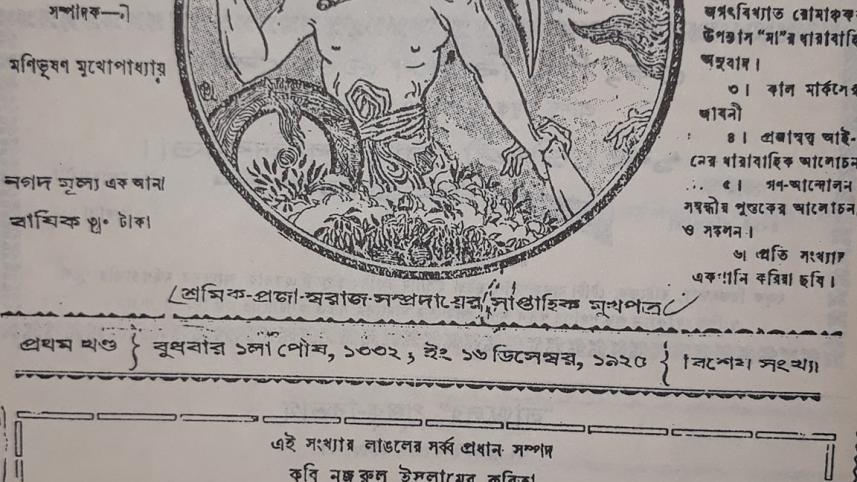 সম্পাদক—
মণিভূষণ মুখোপাধ্যায়
নগদ মূল্য এক আনা
বার্ষিক ৩৷৹ টাকা
জগৎবিখ্যাত রোমাঞ্চক
উপন্যাস "মা"র ধারাবাহি
অনুবাদ।
৩। কাল মার্কসের
জীবনী
৪। প্রজাস্বত্ব আই-
নের ধারাবাহিক আলোচন
৫। গণ-আন্দোলন
সম্বন্ধীয় পুস্তকের আলোচন
ও সঙ্কলন।
৬। প্রতি সংখ্যায়
একখানি করিয়া ছবি।
শ্রমিক-প্রজা-স্বরাজ-সম্প্রদায়ের সাপ্তাহিক মুখপত্র
প্রথম খণ্ড } বুধবার ১লা পৌষ, ১৩৩২ ; ইং ১৬ ডিসেম্বর, ১৯২৫ { বিশেষ সংখ্যা
এই সংখ্যার লাঙলের সর্ব্ব প্রধান সম্পদ
কবি নজরুল ইসলামের কবিতা